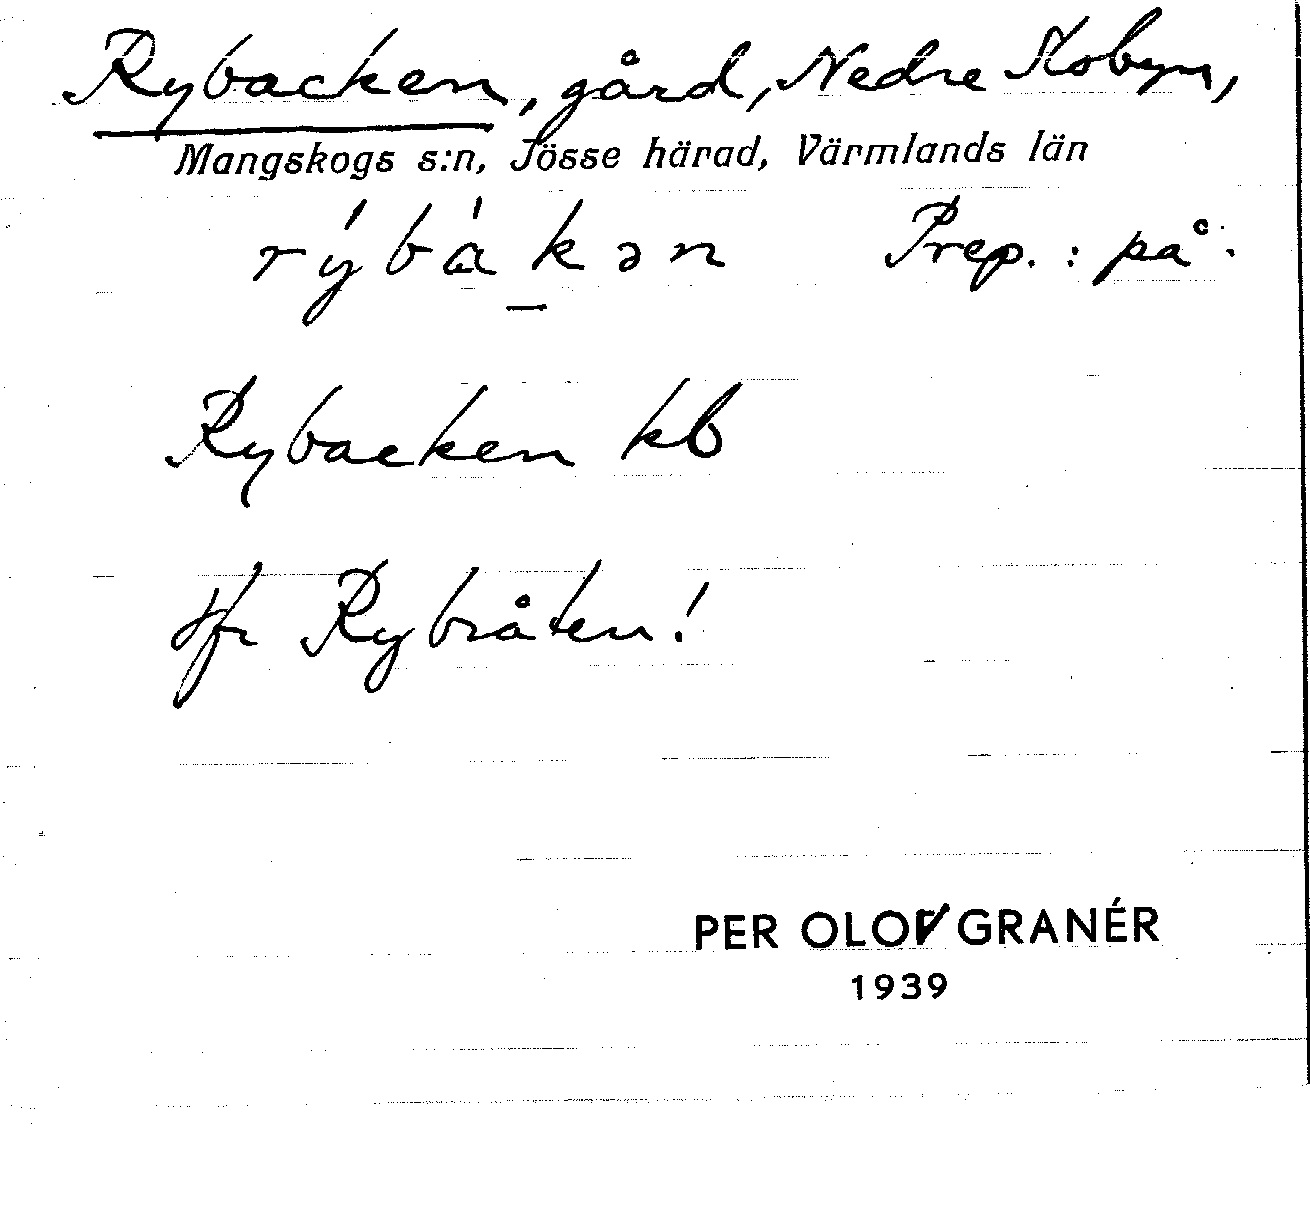 Rybacken, gård, Nedre Kobyn,
Mangskogs s:n, Jösse härad, Värmlands län
rýbàk̠ən Prep.: på.
Rybacken kb
Jfr Rybråten!
PER OLOV GRANÉR
1939